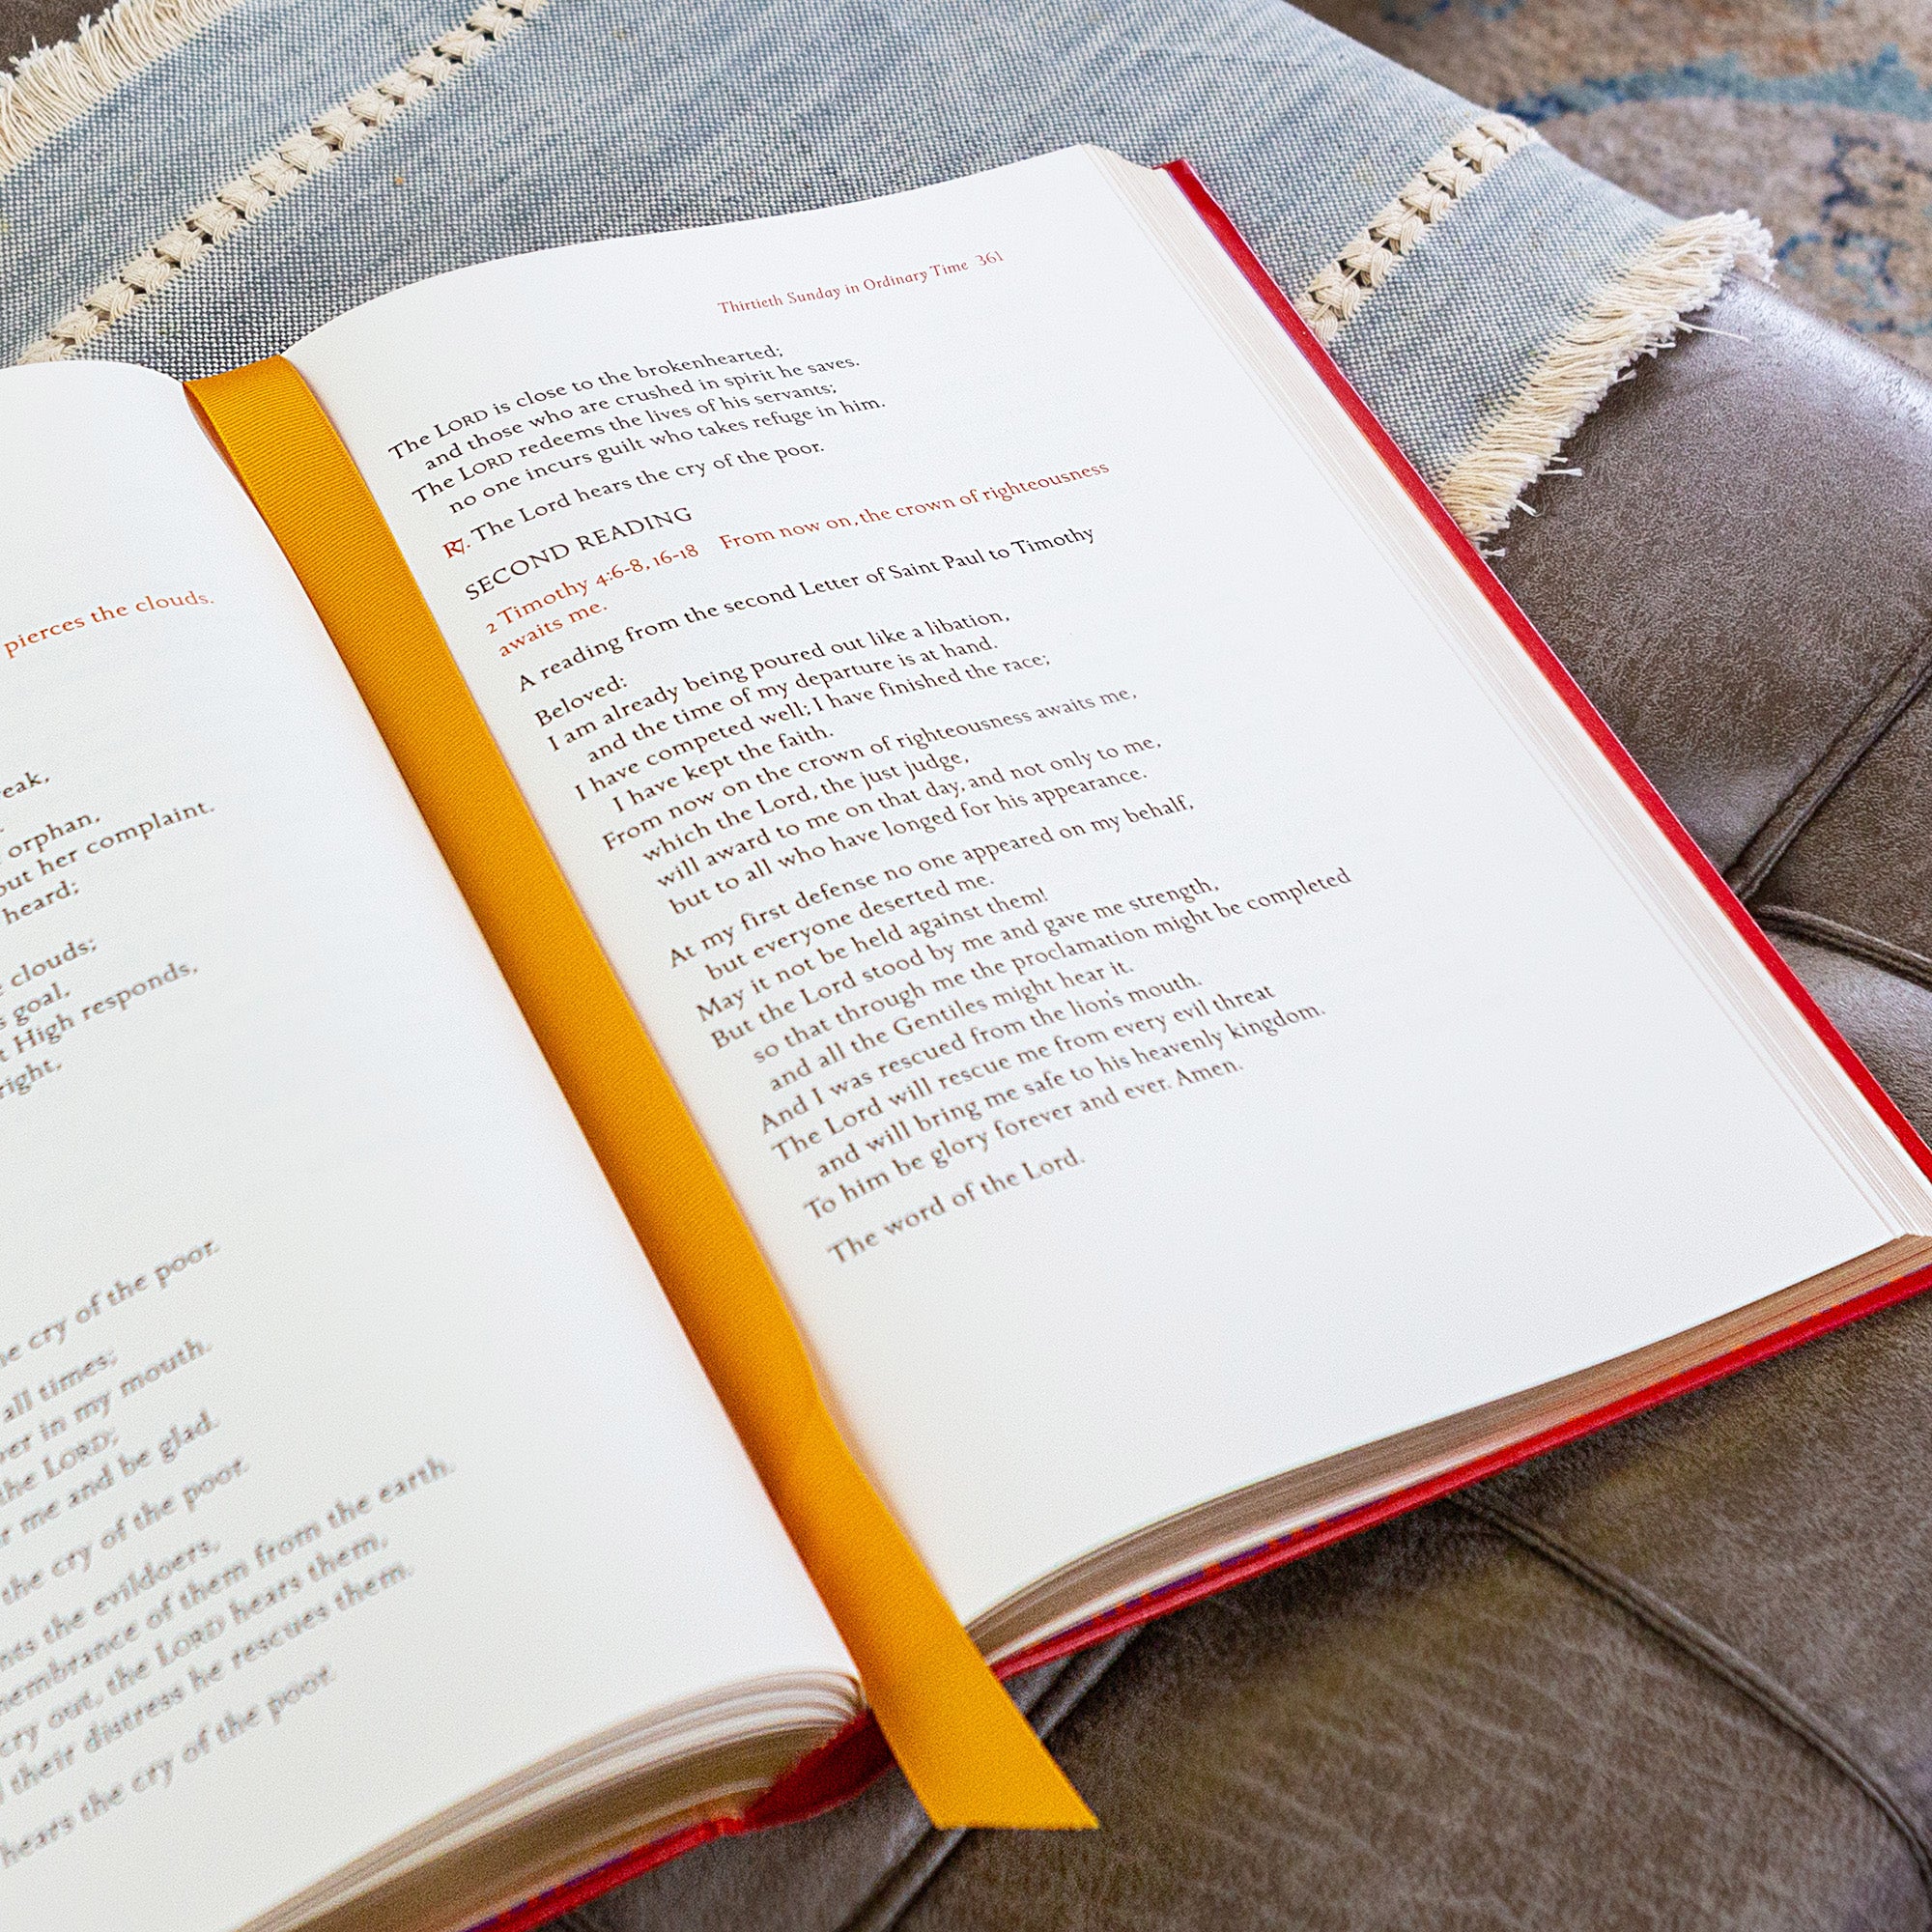 pierces the clouds.
orphan,
out her complaint.
heard;
clouds;
goal,
High responds,
right,
cry of the poor.
all times;
in my mouth.
the LORD;
me and be glad.
cry of the poor.
the cry of the poor.
the evildoers,
of them from the earth.
cry out, the LORD hears them,
their distress he rescues them.
hears the cry of the poor.
Thirtieth Sunday in Ordinary Time 361
The LORD is close to the brokenhearted;
and those who are crushed in spirit he saves.
The LORD redeems the lives of his servants;
no one incurs guilt who takes refuge in him.
℟. The Lord hears the cry of the poor.
SECOND READING
2 Timothy 4:6-8, 16-18 From now on, the crown of righteousness
awaits me.
A reading from the second Letter of Saint Paul to Timothy
Beloved:
I am already being poured out like a libation,
and the time of my departure is at hand.
I have competed well; I have finished the race;
I have kept the faith.
From now on the crown of righteousness awaits me,
which the Lord, the just judge,
will award to me on that day, and not only to me,
but to all who have longed for his appearance.
At my first defense no one appeared on my behalf,
but everyone deserted me.
May it not be held against them!
But the Lord stood by me and gave me strength,
so that through me the proclamation might be completed
and all the Gentiles might hear it.
And I was rescued from the lion's mouth.
The Lord will rescue me from every evil threat
and will bring me safe to his heavenly kingdom.
To him be glory forever and ever. Amen.
The word of the Lord.